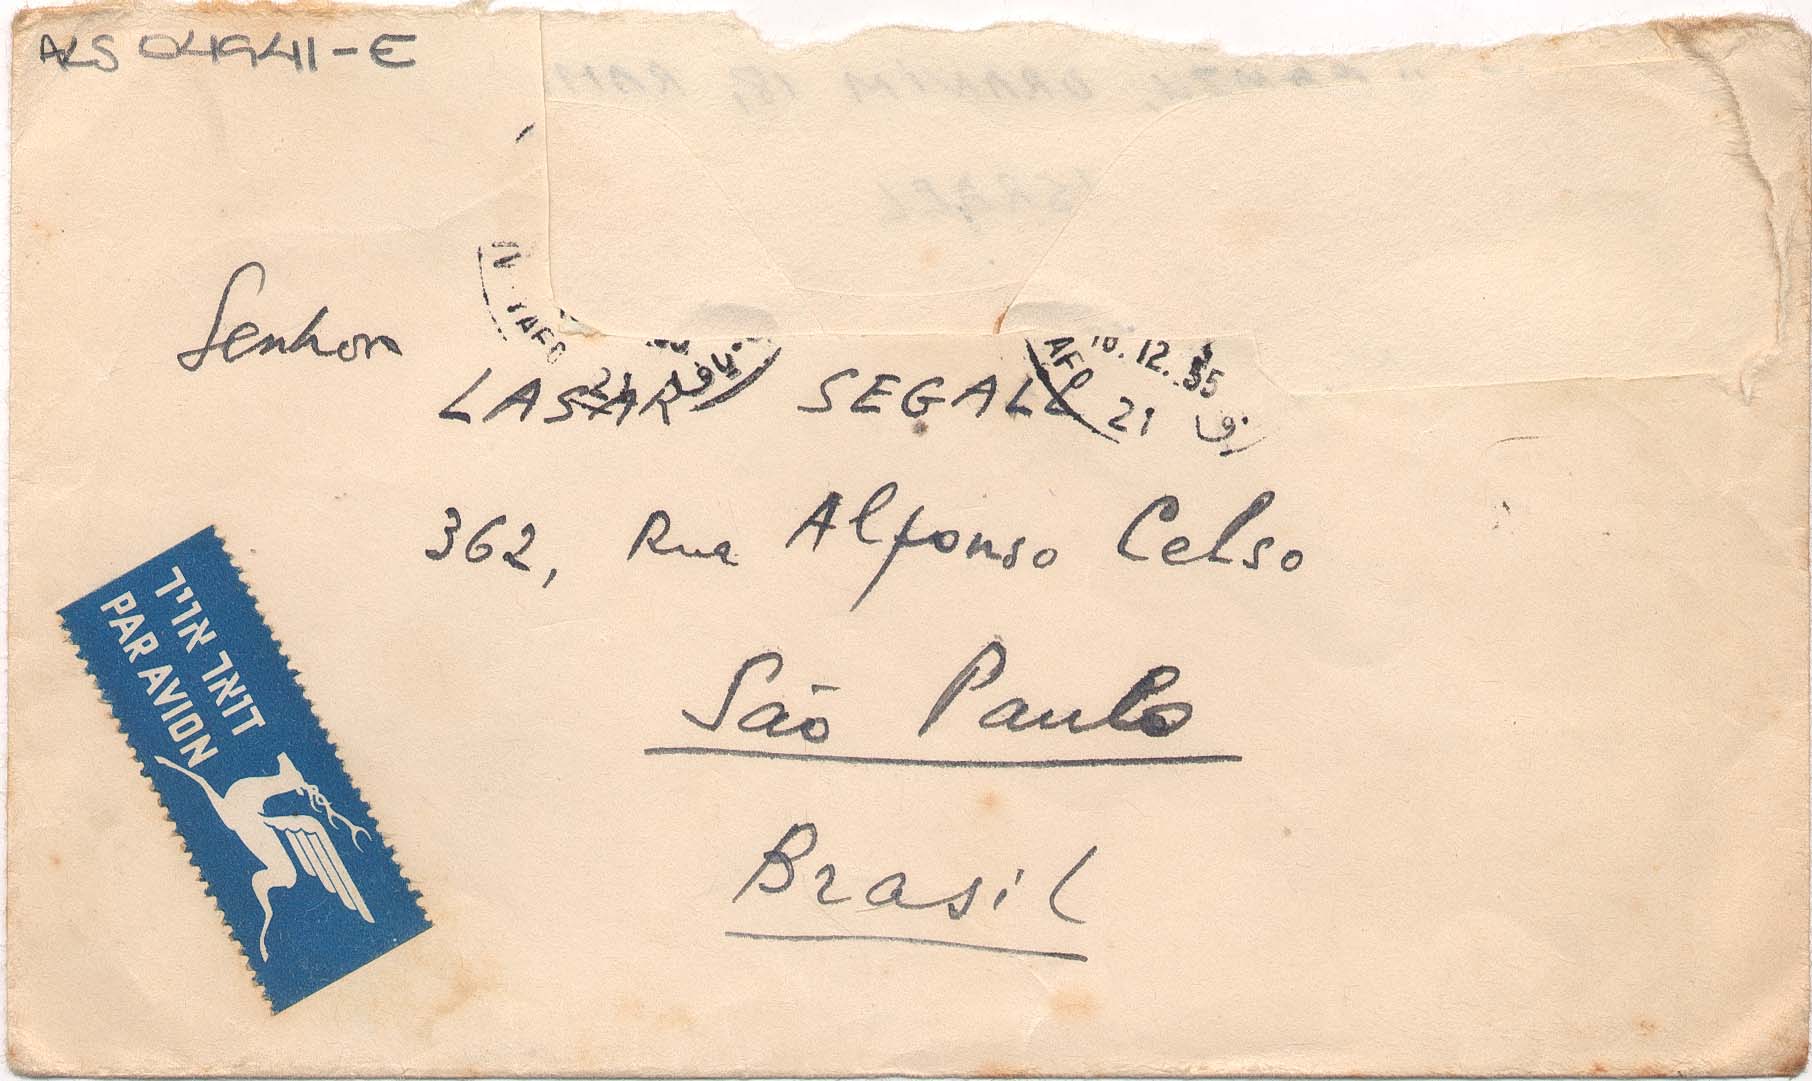 ALS 04941-E
Senhor
LASAR SEGALL
362, Rua Alfonso Celso
São Paulo
Brasil
YAFO
21
AFO
10.12.55
21
דואר אויר
PAR AVION
ISRAEL